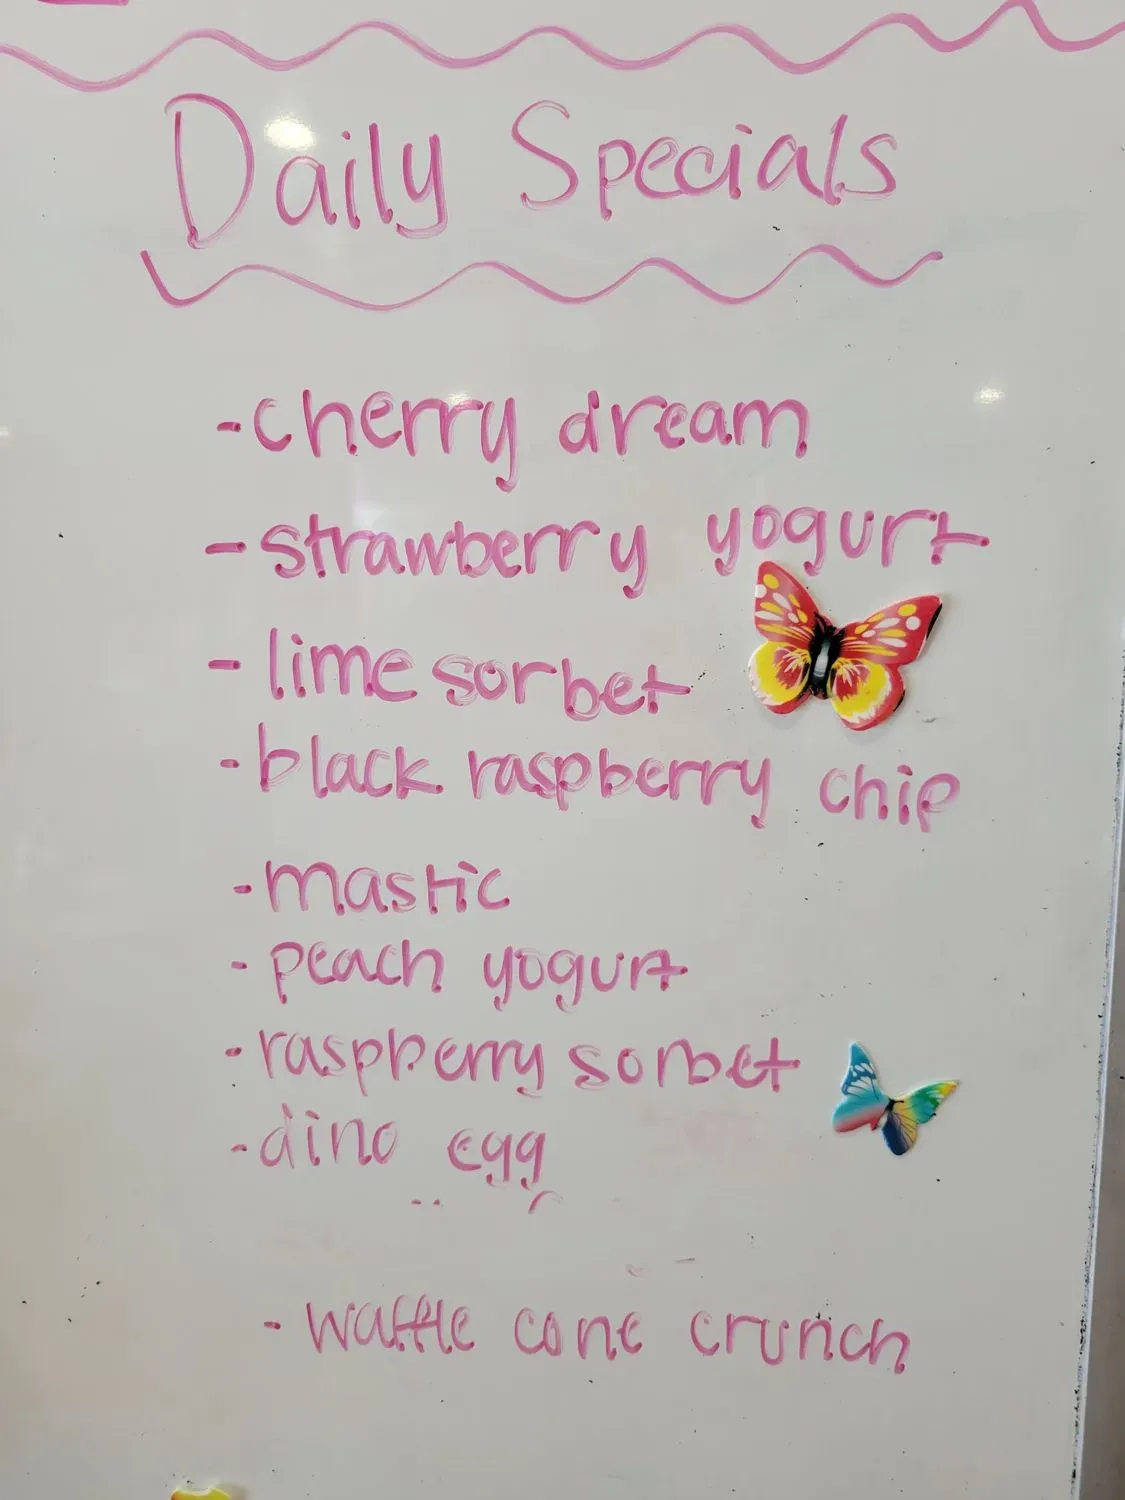 Daily Specials
-cherry dream
-strawberry yogurt
-lime sorbet
-black raspberry chip
-mastic
-peach yogurt
-raspberry sorbet
-dino egg
-waffle cone crunch